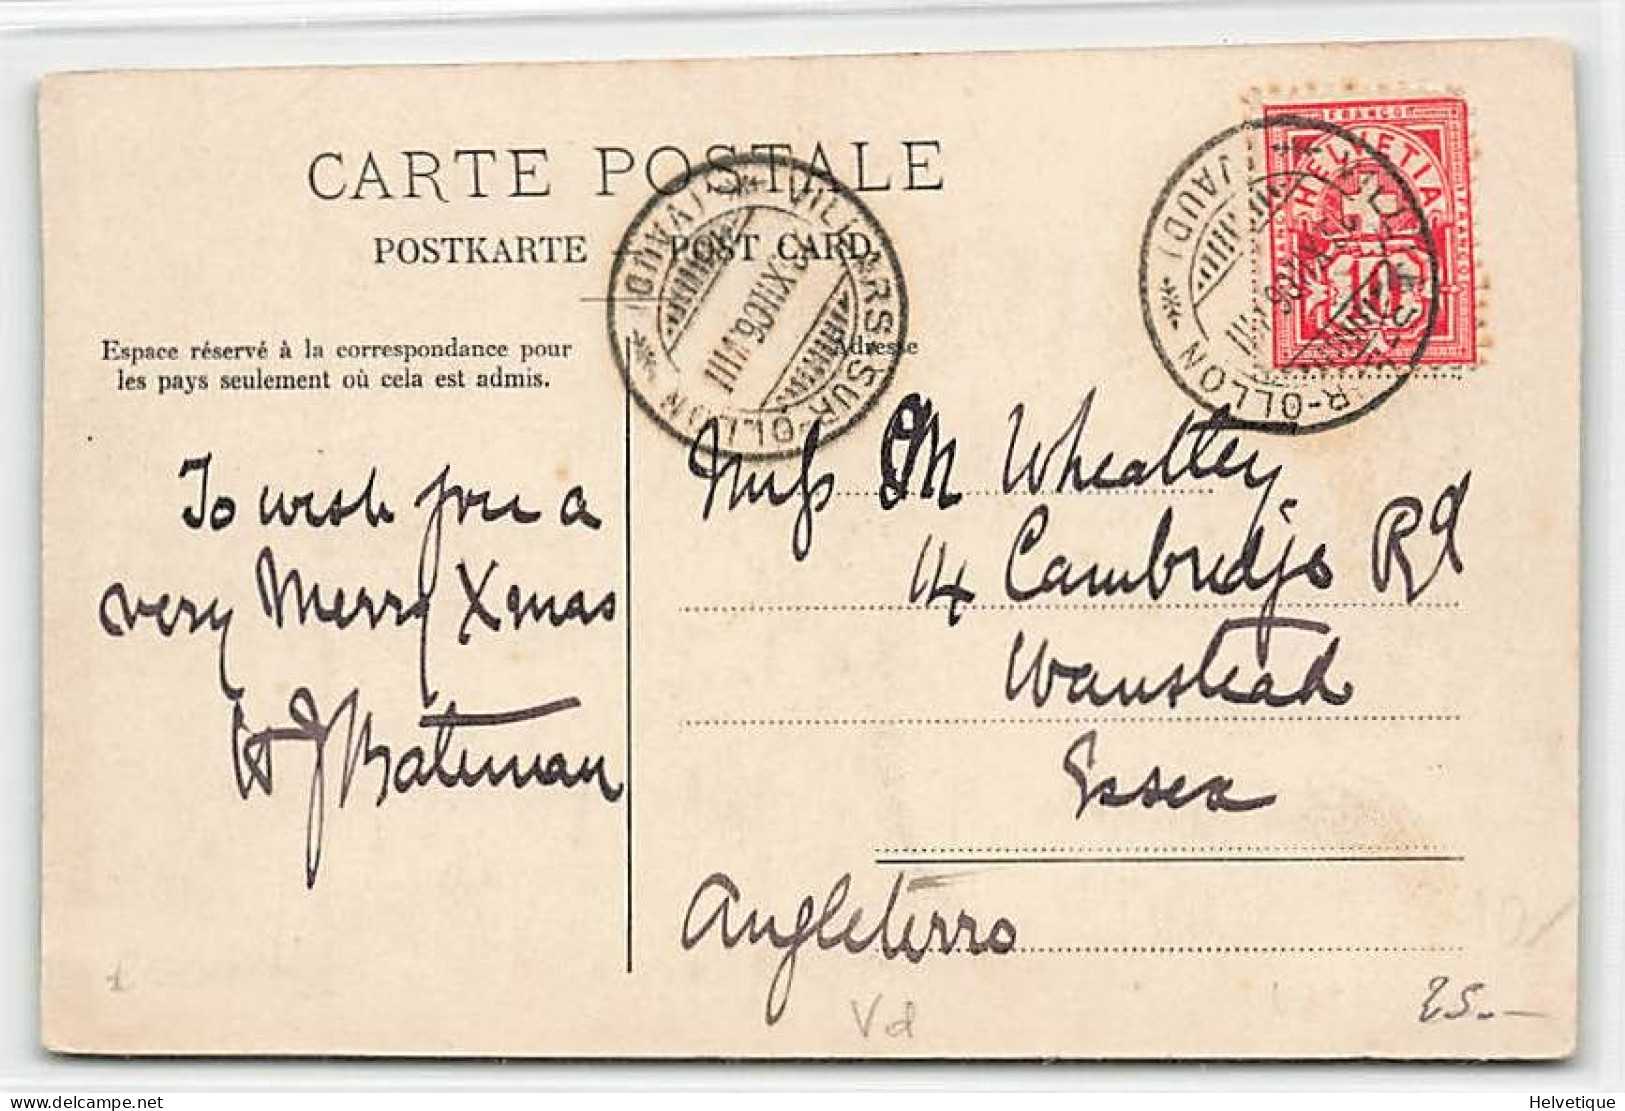 CARTE POSTALE
POSTKARTE
POST CARD.
Espace réservé à la correspondance pour
les pays seulement où cela est admis.
Adresse
VILLARS-SUR-OLLON
(VAUD)
FRANCO
HELVETIA
10
R-OLLON
(VAUD)
To wish you a
very Merry Xmas
H J Bateman
Miss M Wheatley
14 Cambridge Rd
Wanstead
Essex
Angleterre
Vd
25.-
delcampe.net
Helvetique